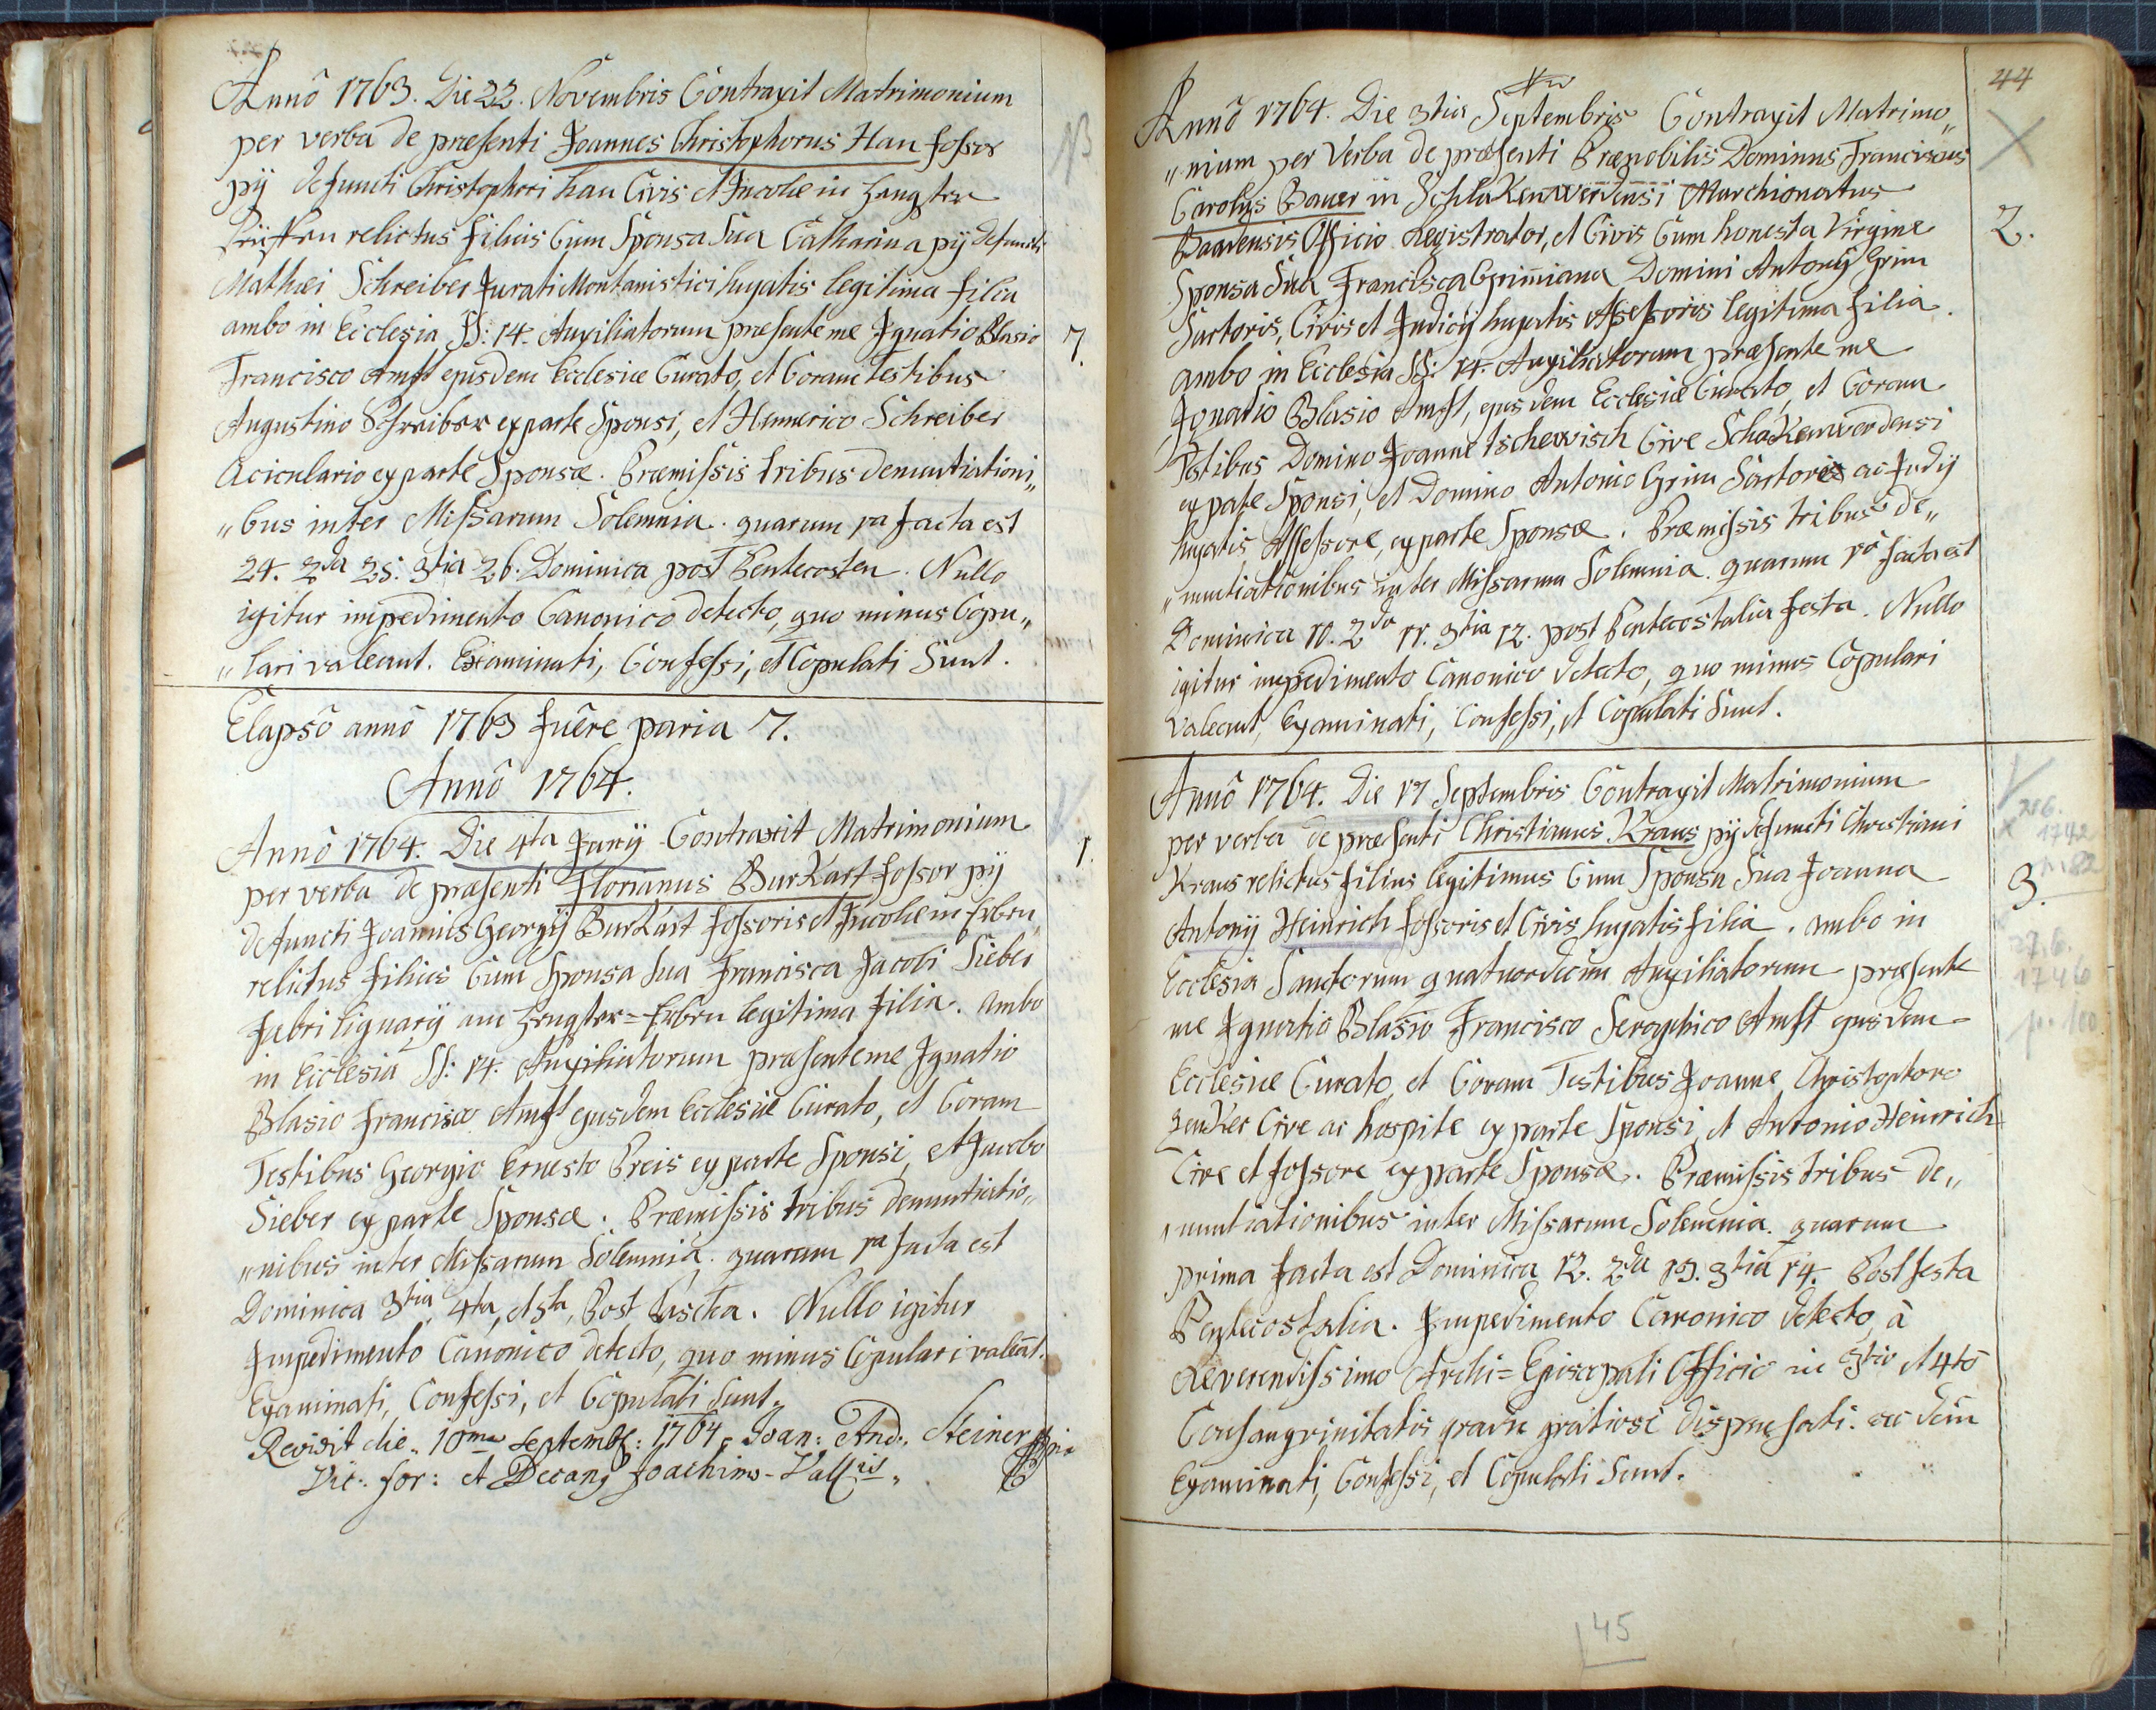 Annô 1763. Die 22. Novembris Contraxit Matrimonium
per verba de præsenti Joannes Christophorus Hau fossor
pij defuncti Christophori hau Civis et Incolæ in Hengster
relictus filius Cum Sponsa Sua Catharina pij defuncti
Mathæi Schreiber Jurati Montanistici hujatis legitima filia
ambo in Ecclesia SS: 14. Auxiliatorum præsente me Ignatio Blasio
7.
Francisco Amst ejusdem Ecclesiæ Curato, et Coram Testibus
Augustino Schreiber ex parte Sponsi, et Hennerico Schreiber
Aciculario ex parte Sponsæ. Præmissis tribus denuntiationi„
„bus inter Missarum Solemnia. quarum 1a facta est
24. 2da 25. 3tia 26. Dominica post Pentecosten. Nullo
igitur impedimento Canonico detecto, quo minus Copu„
„lari valeant. Examinati, Confessi, et Copulati Sunt.
Elapsô annô 1763 fuêre paria 7.
Annô 1764.
Annô 1764. Die 4ta Junij Contraxit Matrimonium
1.
per verba de præsenti Florianus Burkart fossor pij
defuncti Joannis Georgij Burkart fossoris et Incolæ in Erben
relictus filius Cum Sponsa Sua Francisca Jacobi Sieber
fabri lignarij am Hengster=Erben legitima filia. Ambo
in Ecclesia SS: 14. Auxiliatorum præsente me Ignatio
Blasio Francisco Amst ejusdem Ecclesiæ Curato, et Coram
Testibus Georgio Ernesto Preis ex parte Sponsi, et Jacobo
Sieber ex parte Sponsæ. Præmissis tribus denuntiatio„
„nibus inter Missarum Solemnia. quarum 1a facta est
Dominica 3tia, 4ta, et 5ta, Post Pascha. Nullo igitur
Impedimento Canonico detecto, quo minus Copulari valeāt.
Examinati, Confessi, et Copulati Sunt.
Revisit die 10ma Septembr: 1764 Joan: And: Steiner
Vic: for: et Decanꝯ Joachims-Vallis
44
Annô 1764. Die 3tia Septembris Contraxit Matrimo„
„nium per Verba de præsenti Prænobilis Dominus Franciscus
Carolus Bauer in Schlakenwerdensi Marchionatus
Baadensis Officio Registrator, et Civis Cum honesta Virgine
2.
Sponsa Sua Francisca Grimiana Domini Antonij Grim
Sartoris, Civis et Judicij hujatis Assessoris legitima filia.
ambo in Ecclesia SS: 14. Auxiliatorum præsente me
Ignatio Blasio Amst, ejusdem Ecclesiæ Curato, et Coram
Testibus Domino Joanne Tschewisch Cive Schakenwerdensi
ex pate Sponsi, et Domino Antonio Grim Sartore ac Judij
hujatis Assessore, ex parte Sponsæ. Præmissis tribus de„
„nuntiationibus inter Missarum Solemnia. quarum 1a facta est
Dominica 10. 2da 11. 3tia 12. post Pentecostalia festa. Nullo
igitur impedimento Canonico detecto, quo minus Copulari
valeant, Examinati, Confessi, et Copulati Sunt.
Annô 1764. Die 17 Septembris Contraxit Matrimonium
per verba de præsenti Christianus Kraus pij defuncti Christiani
Kraus relictus filius legitimus Cum Sponsa Sua Joanna
3.
Antonij Heinrich fossoris et Civis hujatis filia. ambo in
Ecclesia Sanctorum quatuordecim Auxiliatorum præsente
me Ignatio Blasio Francisco Seraphico Amst ejusdem
Ecclesiæ Curato, et Coram Testibus Joanne Christophoro
Zenker Cive ac hospite ex parte Sponsi, et Antonio Heinrich
Cive et fossore ex parte Sponsæ. Præmissis tribus de„
„nuntiationibus inter Missarum Solemnia. quarum
prima facta est Dominica 12. 2da 13. 3tia 14. Post festa
Pentecostalia. Impedimento Canonico detecto, à
Reverendissimo Archi=Episcopali Officio in 3tio et 4to
Consanguinitatis gradu gratiose dispensati. ac dein
Examinati, Confessi, et Copulati Sunt.
1742
27.6.
1746
p. 100
45